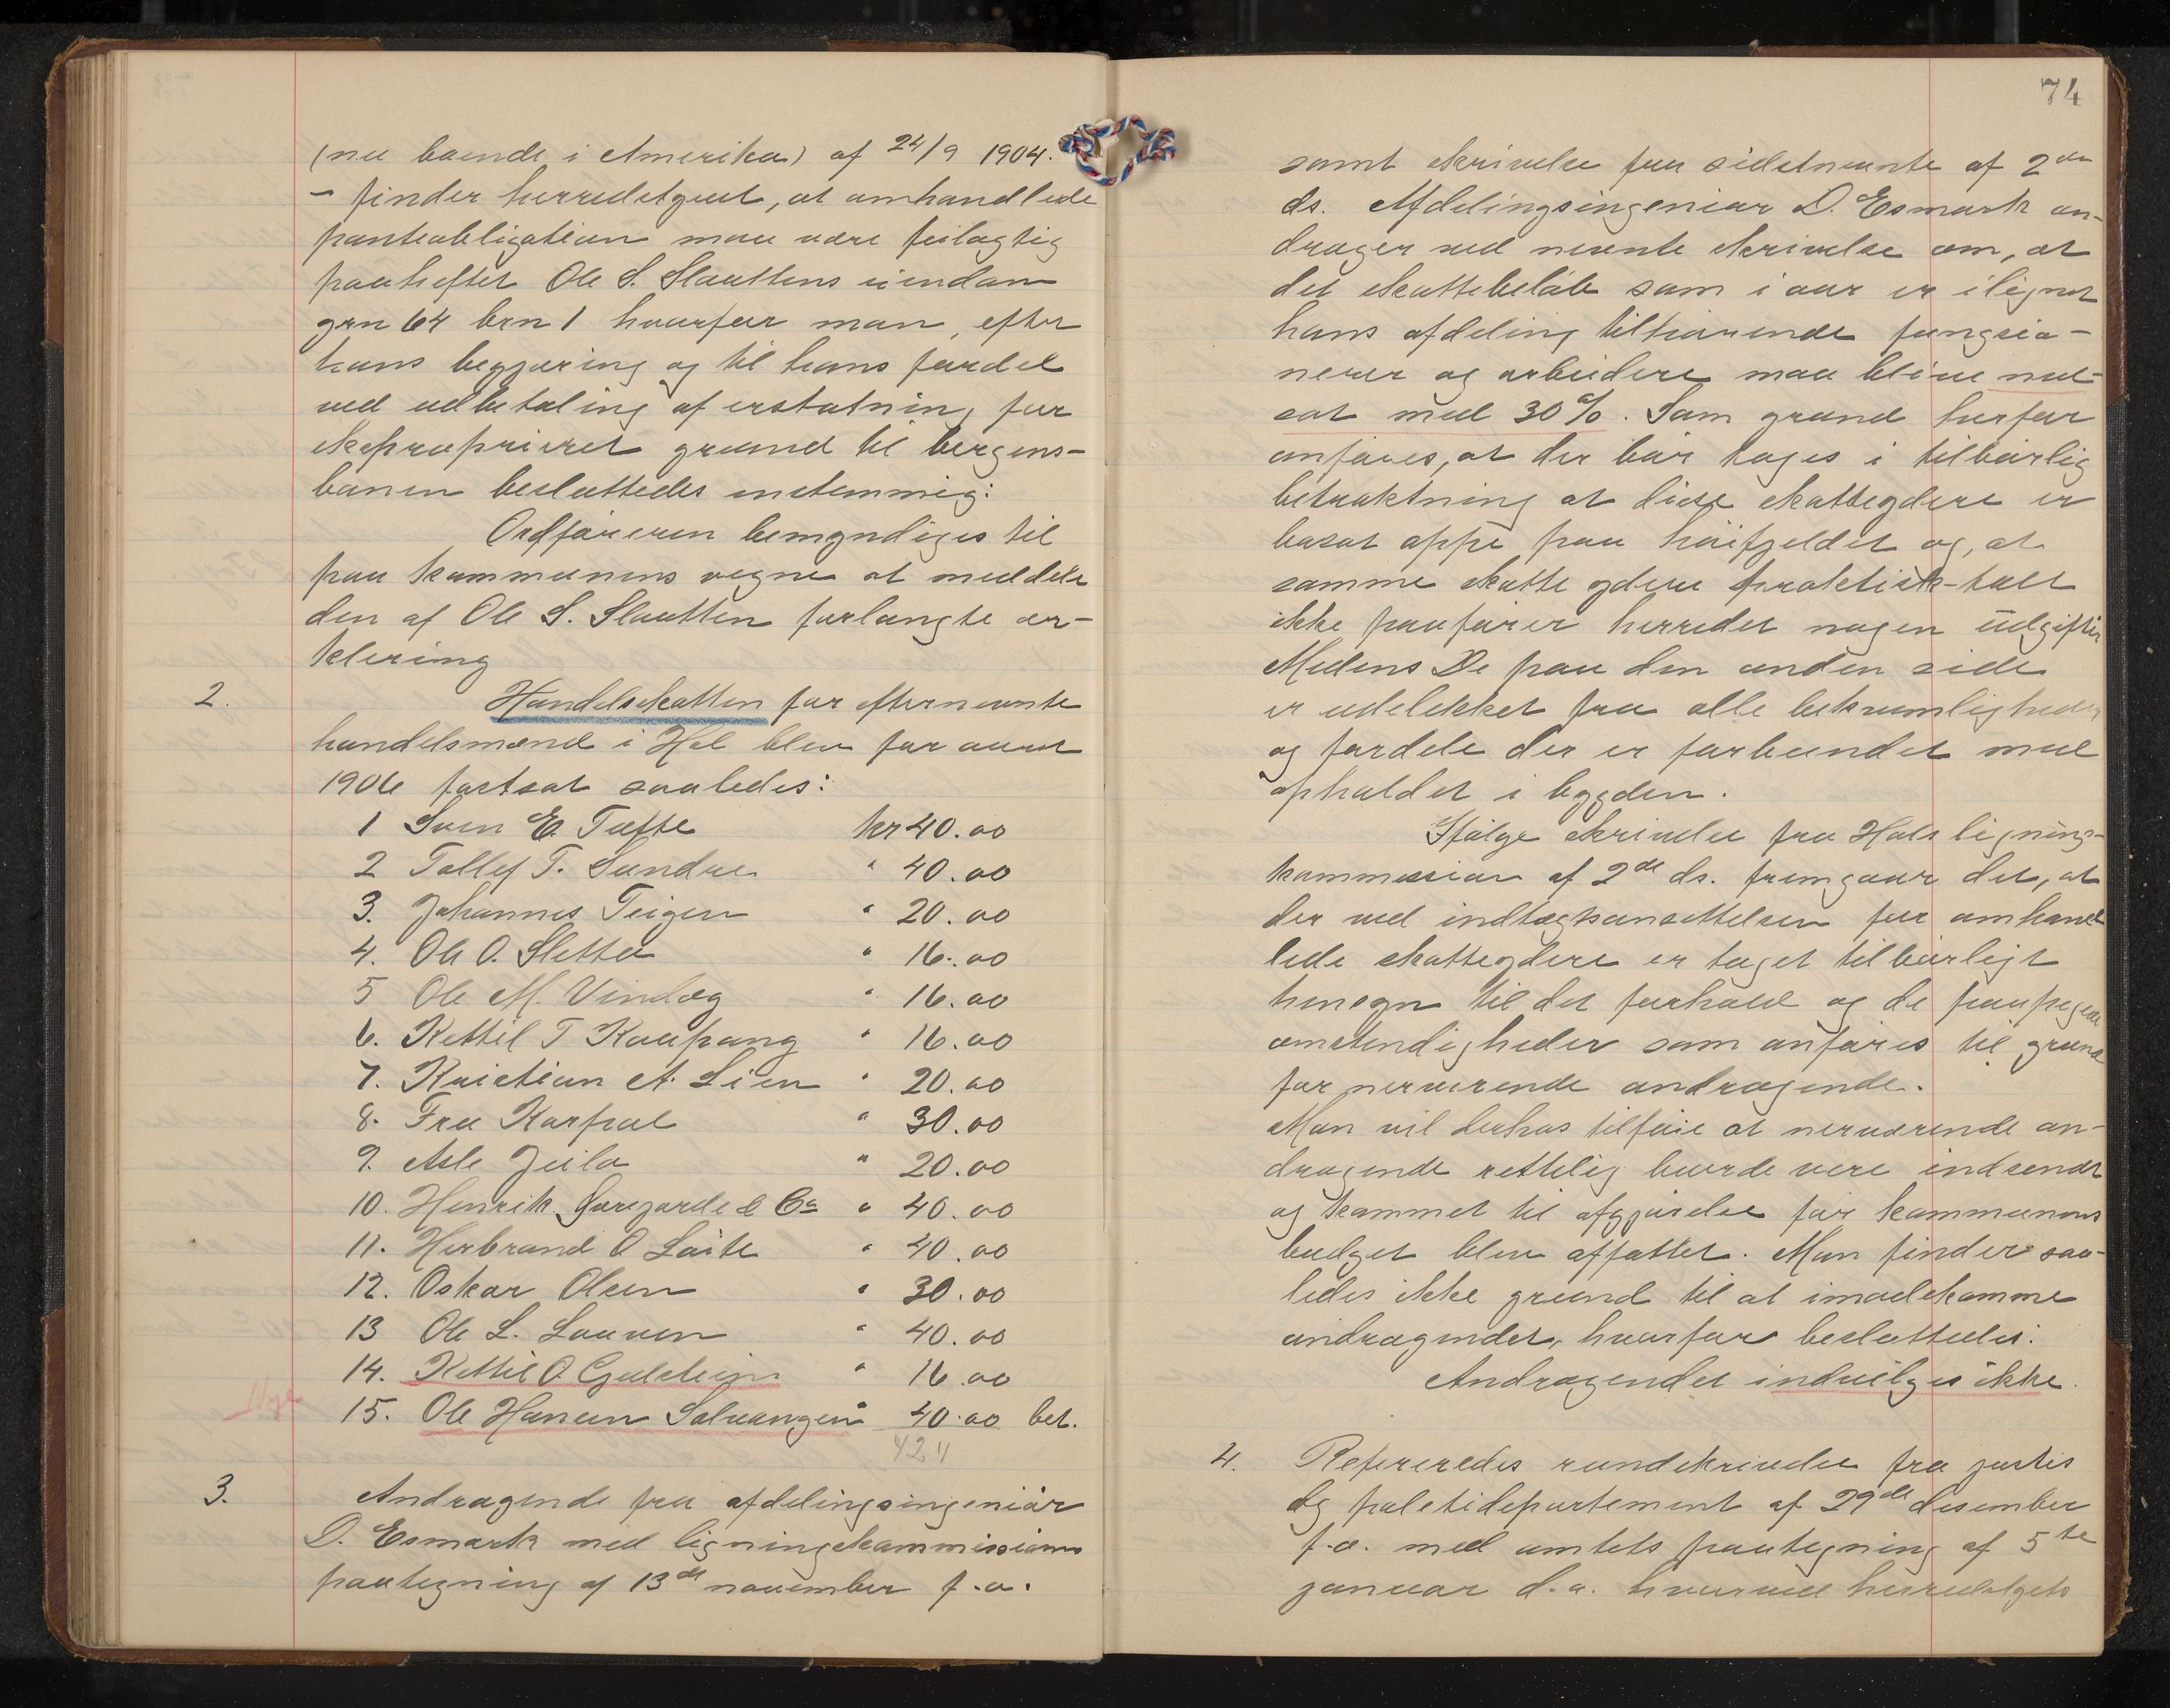 (nu boende i Amerika) af 24/9 1904.
– finder herredstyret, at omhandlede
panteobligation maa være feilagtig
paaheftet Ole S. Slaattens eiendom
grn 64 brn 1 hvorfor man, efter
hans begjæring og til hans fordel
ved udbetaling af erstatning for
ekspropriert grund til bergens-
banen besluttedes enstemmig:
Ordføreren bemyndiges til
paa kommunens vegne at meddele
den af Ole S. Slaatten forlangte er-
klering
2. Handelsskatten for efternevnte
handelsmænd i Hol blev for aaret
1906 fastsat saaledes:
1 Sven E. Tufte kr 40.00
2 Tollef T. Sundre " 40.00
3. Johannes Teigen " 20.00
4. Ole O. Sletto " 16.00
5 Ole M. Vindeg " 16.00
6. Kettil T Kaupang " 16.00
7. Kristian A. Lien " 20.00
8. Fru Karpal " 30.00
9. Asle Jeilo " 20.00
10. Henrik & Co " 40.00
11. Herbrand O Løite " 40.00
12. Oskar Olsen " 30.00
13 Ole L. Laaven " 40.00
14. Kettil O " 16.00
15. Ole Hansen Solvangen " 40.00 bet.
424
3. Andragende fra afdelingsingeniør
D. Esmark med ligningskommissions
paategning af 13de november f.a.
74
samt skrivelse fra sidstnevnte af 2den
ds. Afdelingsingeniør D. Esmark an-
drager ved nevnte skrivelse om, at
det skattebeløb som i aar er ilignet
hans afdeling tilhørende fungsio-
nerer og arbeidere maa blive ned-
sat med 30%. Som grund herfor
anføres, at der bør tages i tilbørlig
betraktning at disse skattegdere er
bosat oppe paa høifjeldet og, at
samme skatte ydere praktisk-talt
ikke paafører herredet nogen udgifter
Medens De paa den anden side
er udelukket fra alle bekvemligheder
og fordele der er forbundet med
opholdet i bygden.
Ifølge skrivelse fra Hols lignings-
kommission af 2de ds. fremgaar det, at
der ved indtægtsansettelsen for omhand
lede skattegdere er taget tilbørligt
hensyn til det forhold og de paapegede
omstendigheder som anføres til grund
for nerværende andragende.
Man vil derhos tilføie at nerværende an-
dragende rettelig burde vere indsendt
og kommet til afgjørelse før kommunens
budget blev affattet. Man finder saa-
ledes ikke grund til at imødekomme
andragendet, hvorfor besluttedes:
Andragendet indvilges ikke.
4. Refereredes rundskrivelse fra justis
og politidepartement af 29de desember
f.a. med amtets paategning af 5te
januar d.a. hvorved herredstyrets